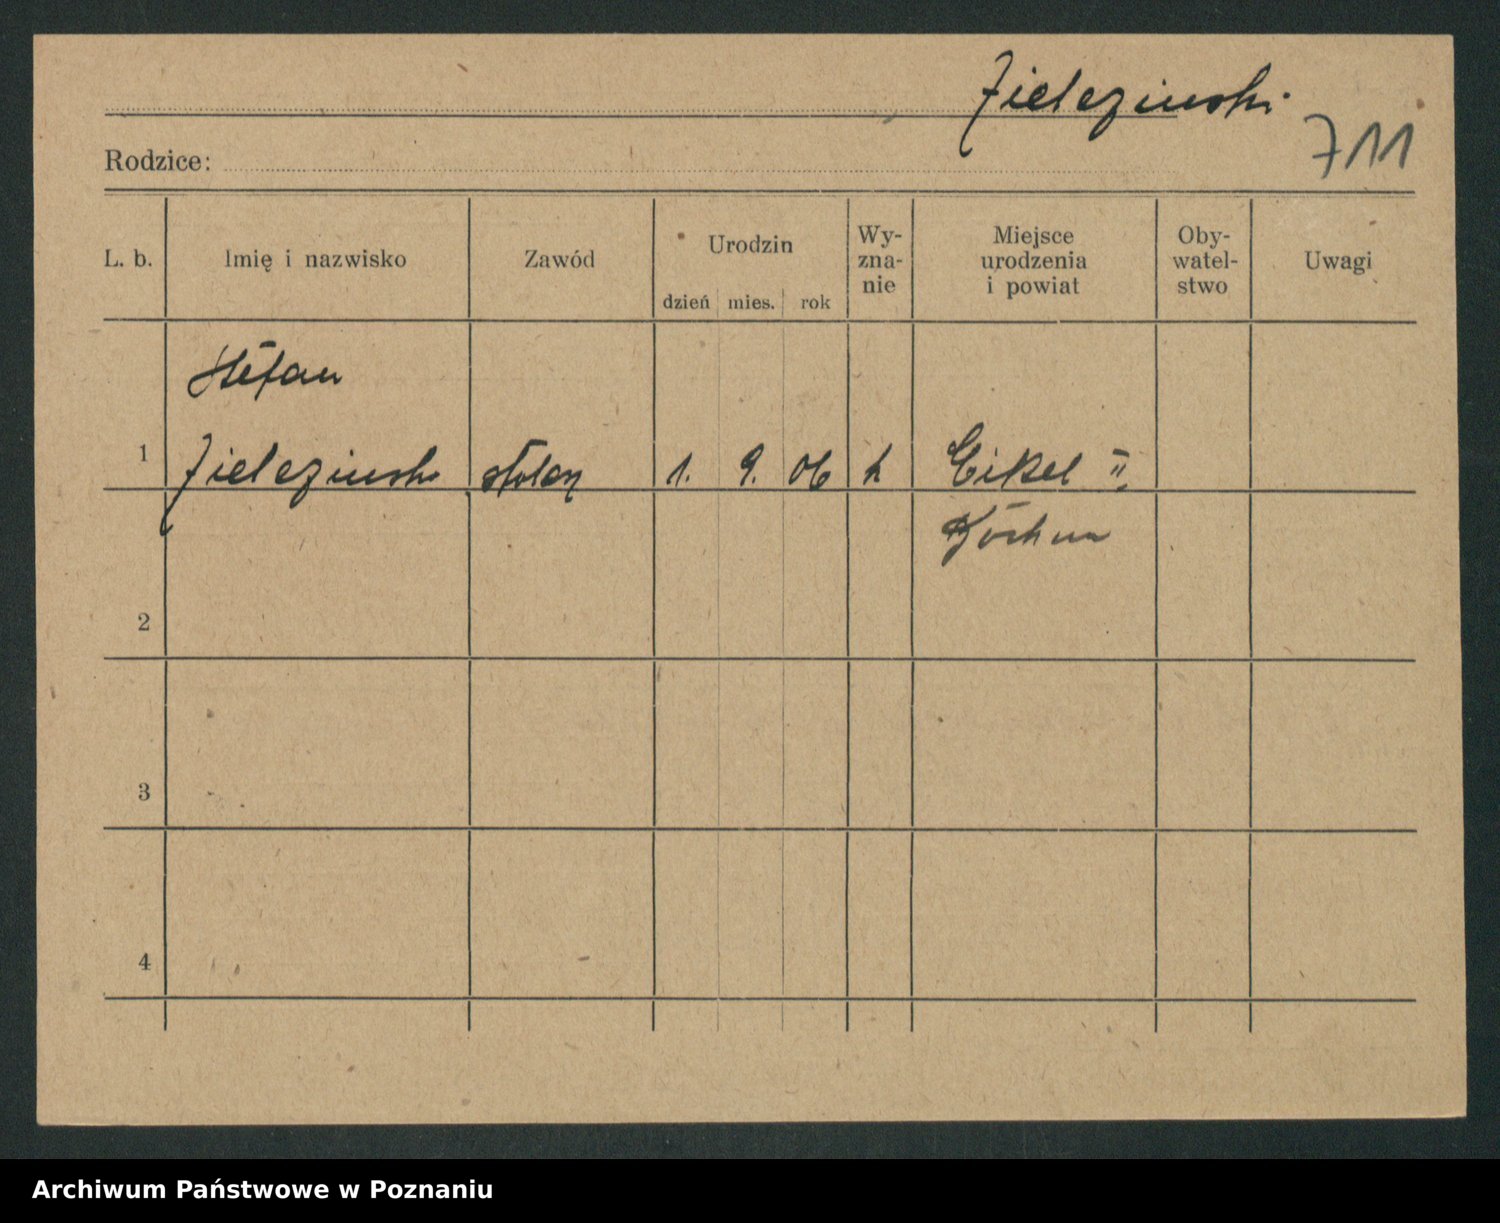 Zieleziński
711
Rodzice:
L. b.
Imię i nazwisko
Zawód
Urodzin
dzień mies. rok
Wy-
zna-
nie
Miejsce
urodzenia
i powiat
Oby-
watel-
stwo
Uwagi
Stefan
1 Zieleziński stolarz 1. 9. 06 k Eikel II
2
3
4
Archiwum Państwowe w Poznaniu